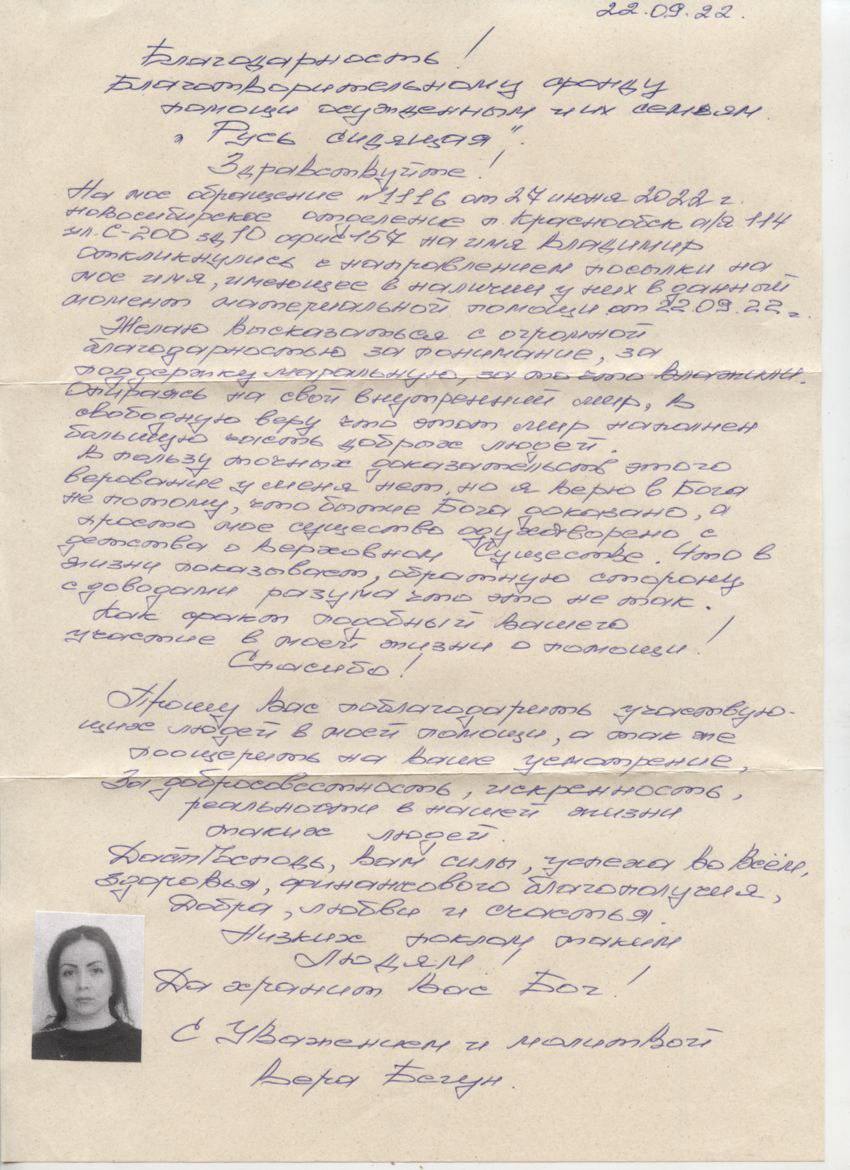 22.09.22.
Благодарность!
Благотворительному фонду
помощи осужденным и их семьям
„Русь сидящая".
Здравствуйте!
На мое обращение №1116 от 27 июня 2022 г.
новосибирское отделение п. Краснообск а/я 114
ул. С-200 зд 10 офис 157 на имя Владимир
откликнулись с направлением посылки на
мое имя, имеющее в наличии у них в данный
момент материальной помощи от 22.09.22 г.
Желаю высказаться с огромной
благодарностью за понимание, за
поддержку маральную, за то что
Опираясь на свой внутренний мир, в
свободную веру что этот мир наполнен
большую часть добрых людей.
В пользу точных доказательств этого
верование у меня нет, но я верю в Бога
не потому, что бытие Бога доказано, а
просто мое существо одухотворено с
детства о Верховном Существе. Что в
жизни показывает, обратную сторону
с доводами разума что это не так.
Как факт подобный вашего
участие в моей жизни о помощи!
Спасибо!
Прошу Вас поблагодарить участвую-
щих людей в моей помощи, а так же
поощерить на ваше усмотрение,
За добросовестность, искренность,
реальности в нашей жизни
таких людей.
Даст Господь, вам силы, успеха во Всём,
здоровья, финансового благополучия,
Добра, любви и счастья.
Низких поклон таким
Людям!
Да хранит Вас Бог!
С Уважением и молитвой
Вера Бегун.